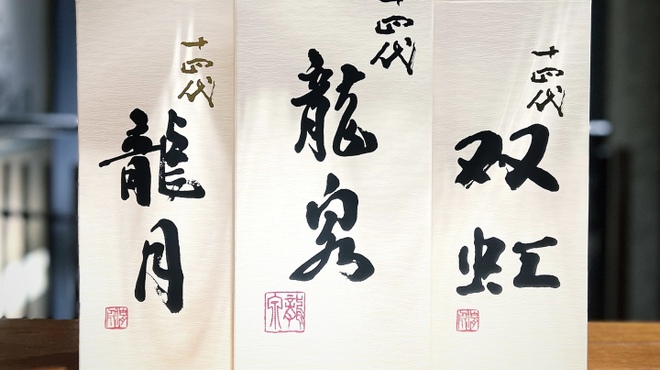 十四代
龍月
十四代
龍泉
十四代
双虹